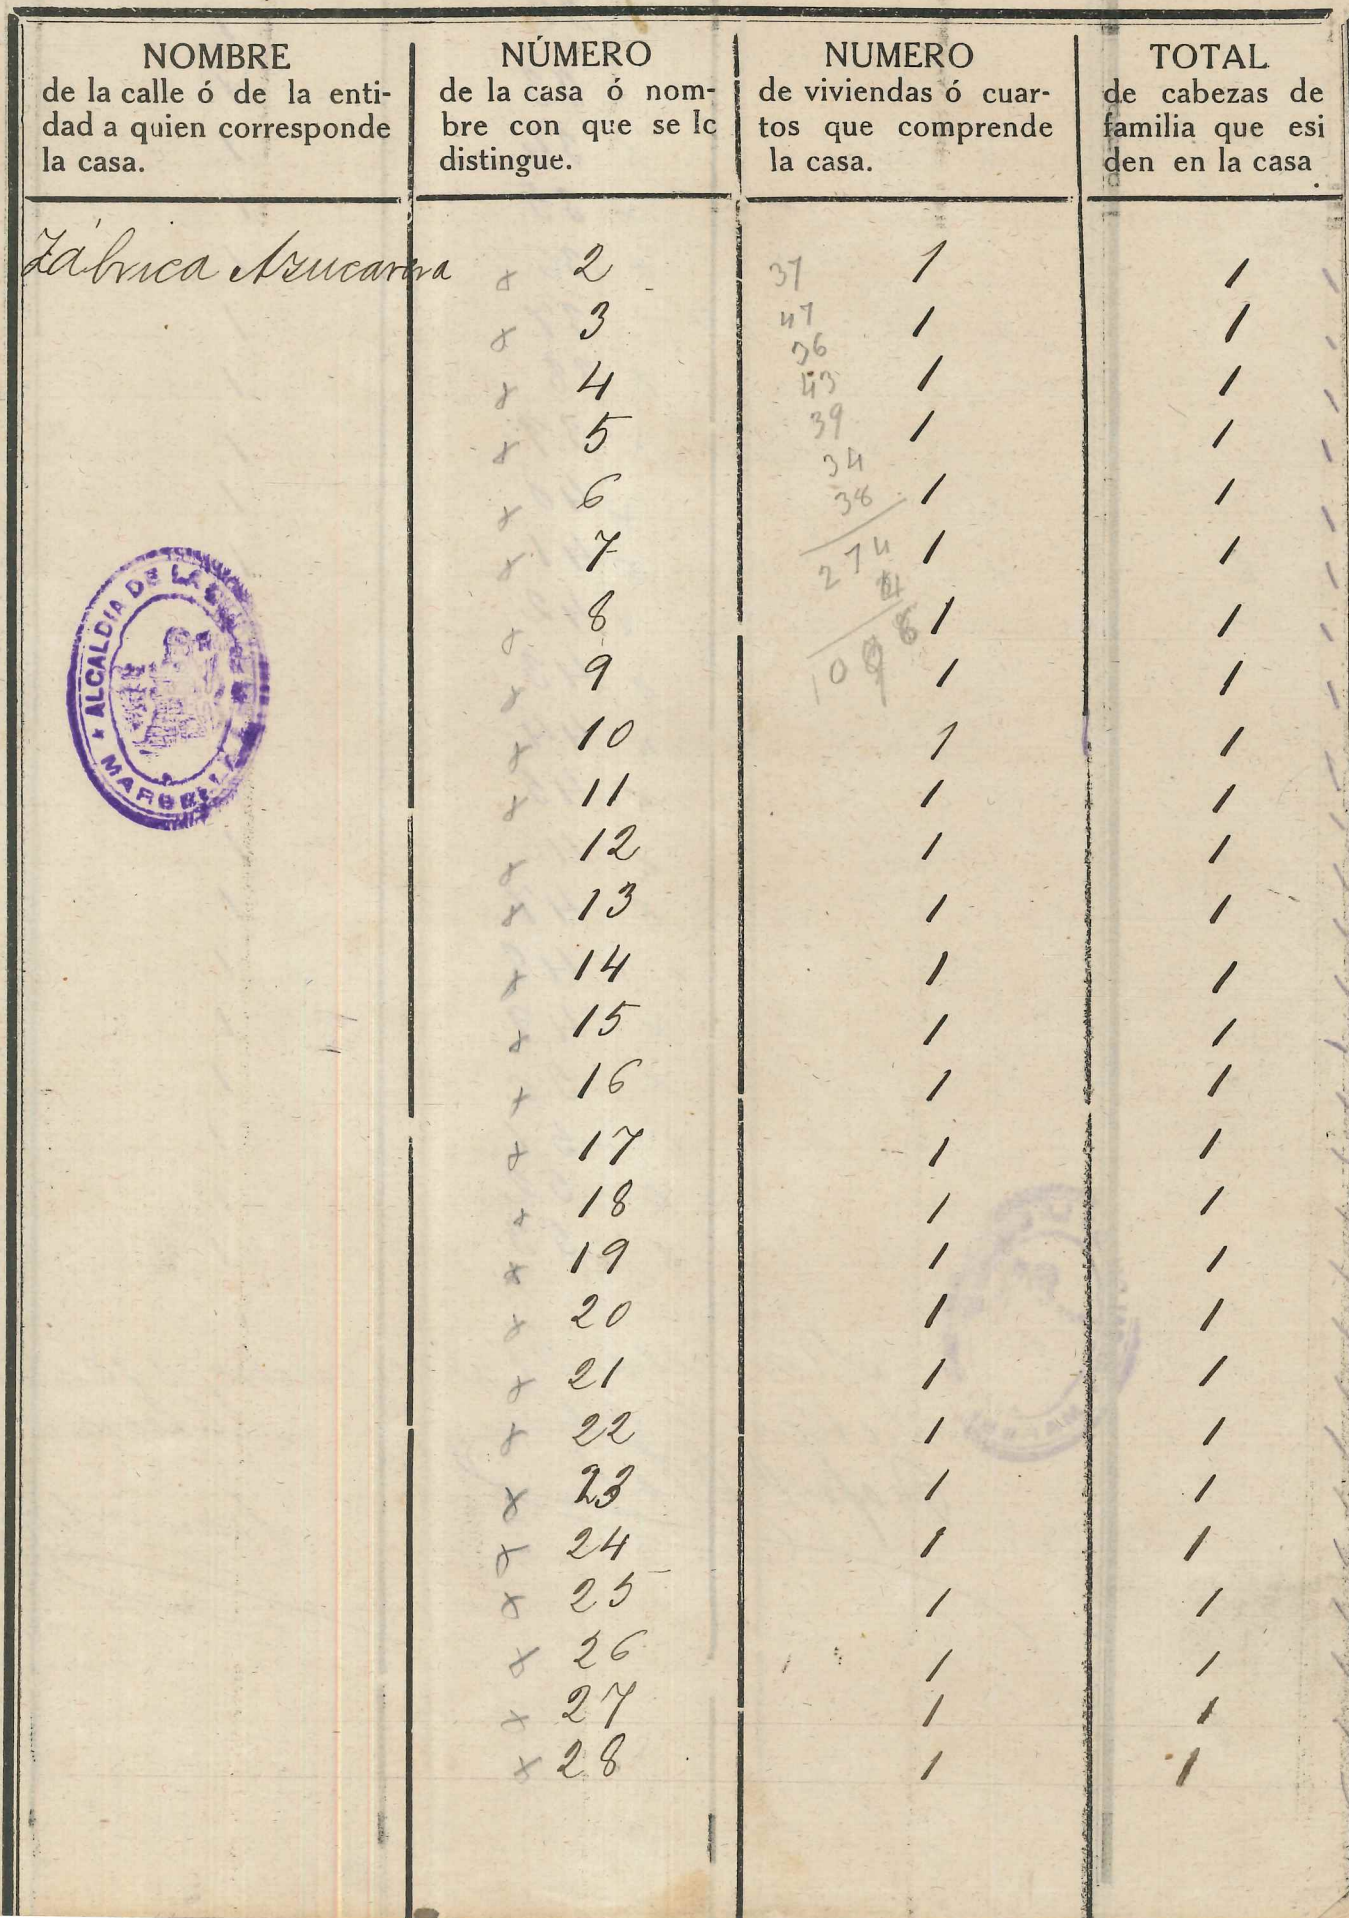 NOMBRE
de la calle ó de la enti-
dad a quien corresponde
la casa.
NÚMERO
de la casa ó nom-
bre con que se lc
distingue.
NUMERO
de viviendas ó cuar-
tos que comprende
la casa.
TOTAL
de cabezas de
familia que esi
den en la casa
Fábrica Azucarera 2 1 1
3 1 1
4 1 1
5 1 1
6 1 1
7 1 1
8 1 1
9 1 1
10 1 1
11 1 1
12 1 1
13 1 1
14 1 1
15 1 1
16 1 1
17 1 1
18 1 1
19 1 1
20 1 1
21 1 1
22 1 1
23 1 1
24 1 1
25 1 1
26 1 1
27 1 1
28 1 1
37
47
36
43
39
34
38
274
ALCALDIA DE LA
MARBELLA